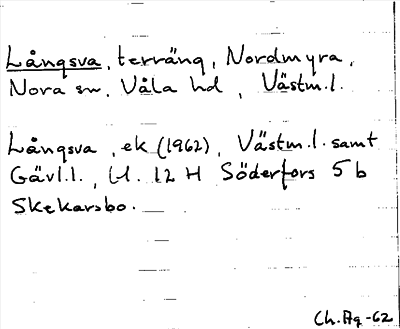 Långsva, terräng, Nordmyra,
Nora sn, Våla hd, Västm.l.
Långsva, ek (1962), Västm.l. samt
Gävl.l., U. 12 H Söderfors 5 b
Skekarsbo.
Ch.Ag -62